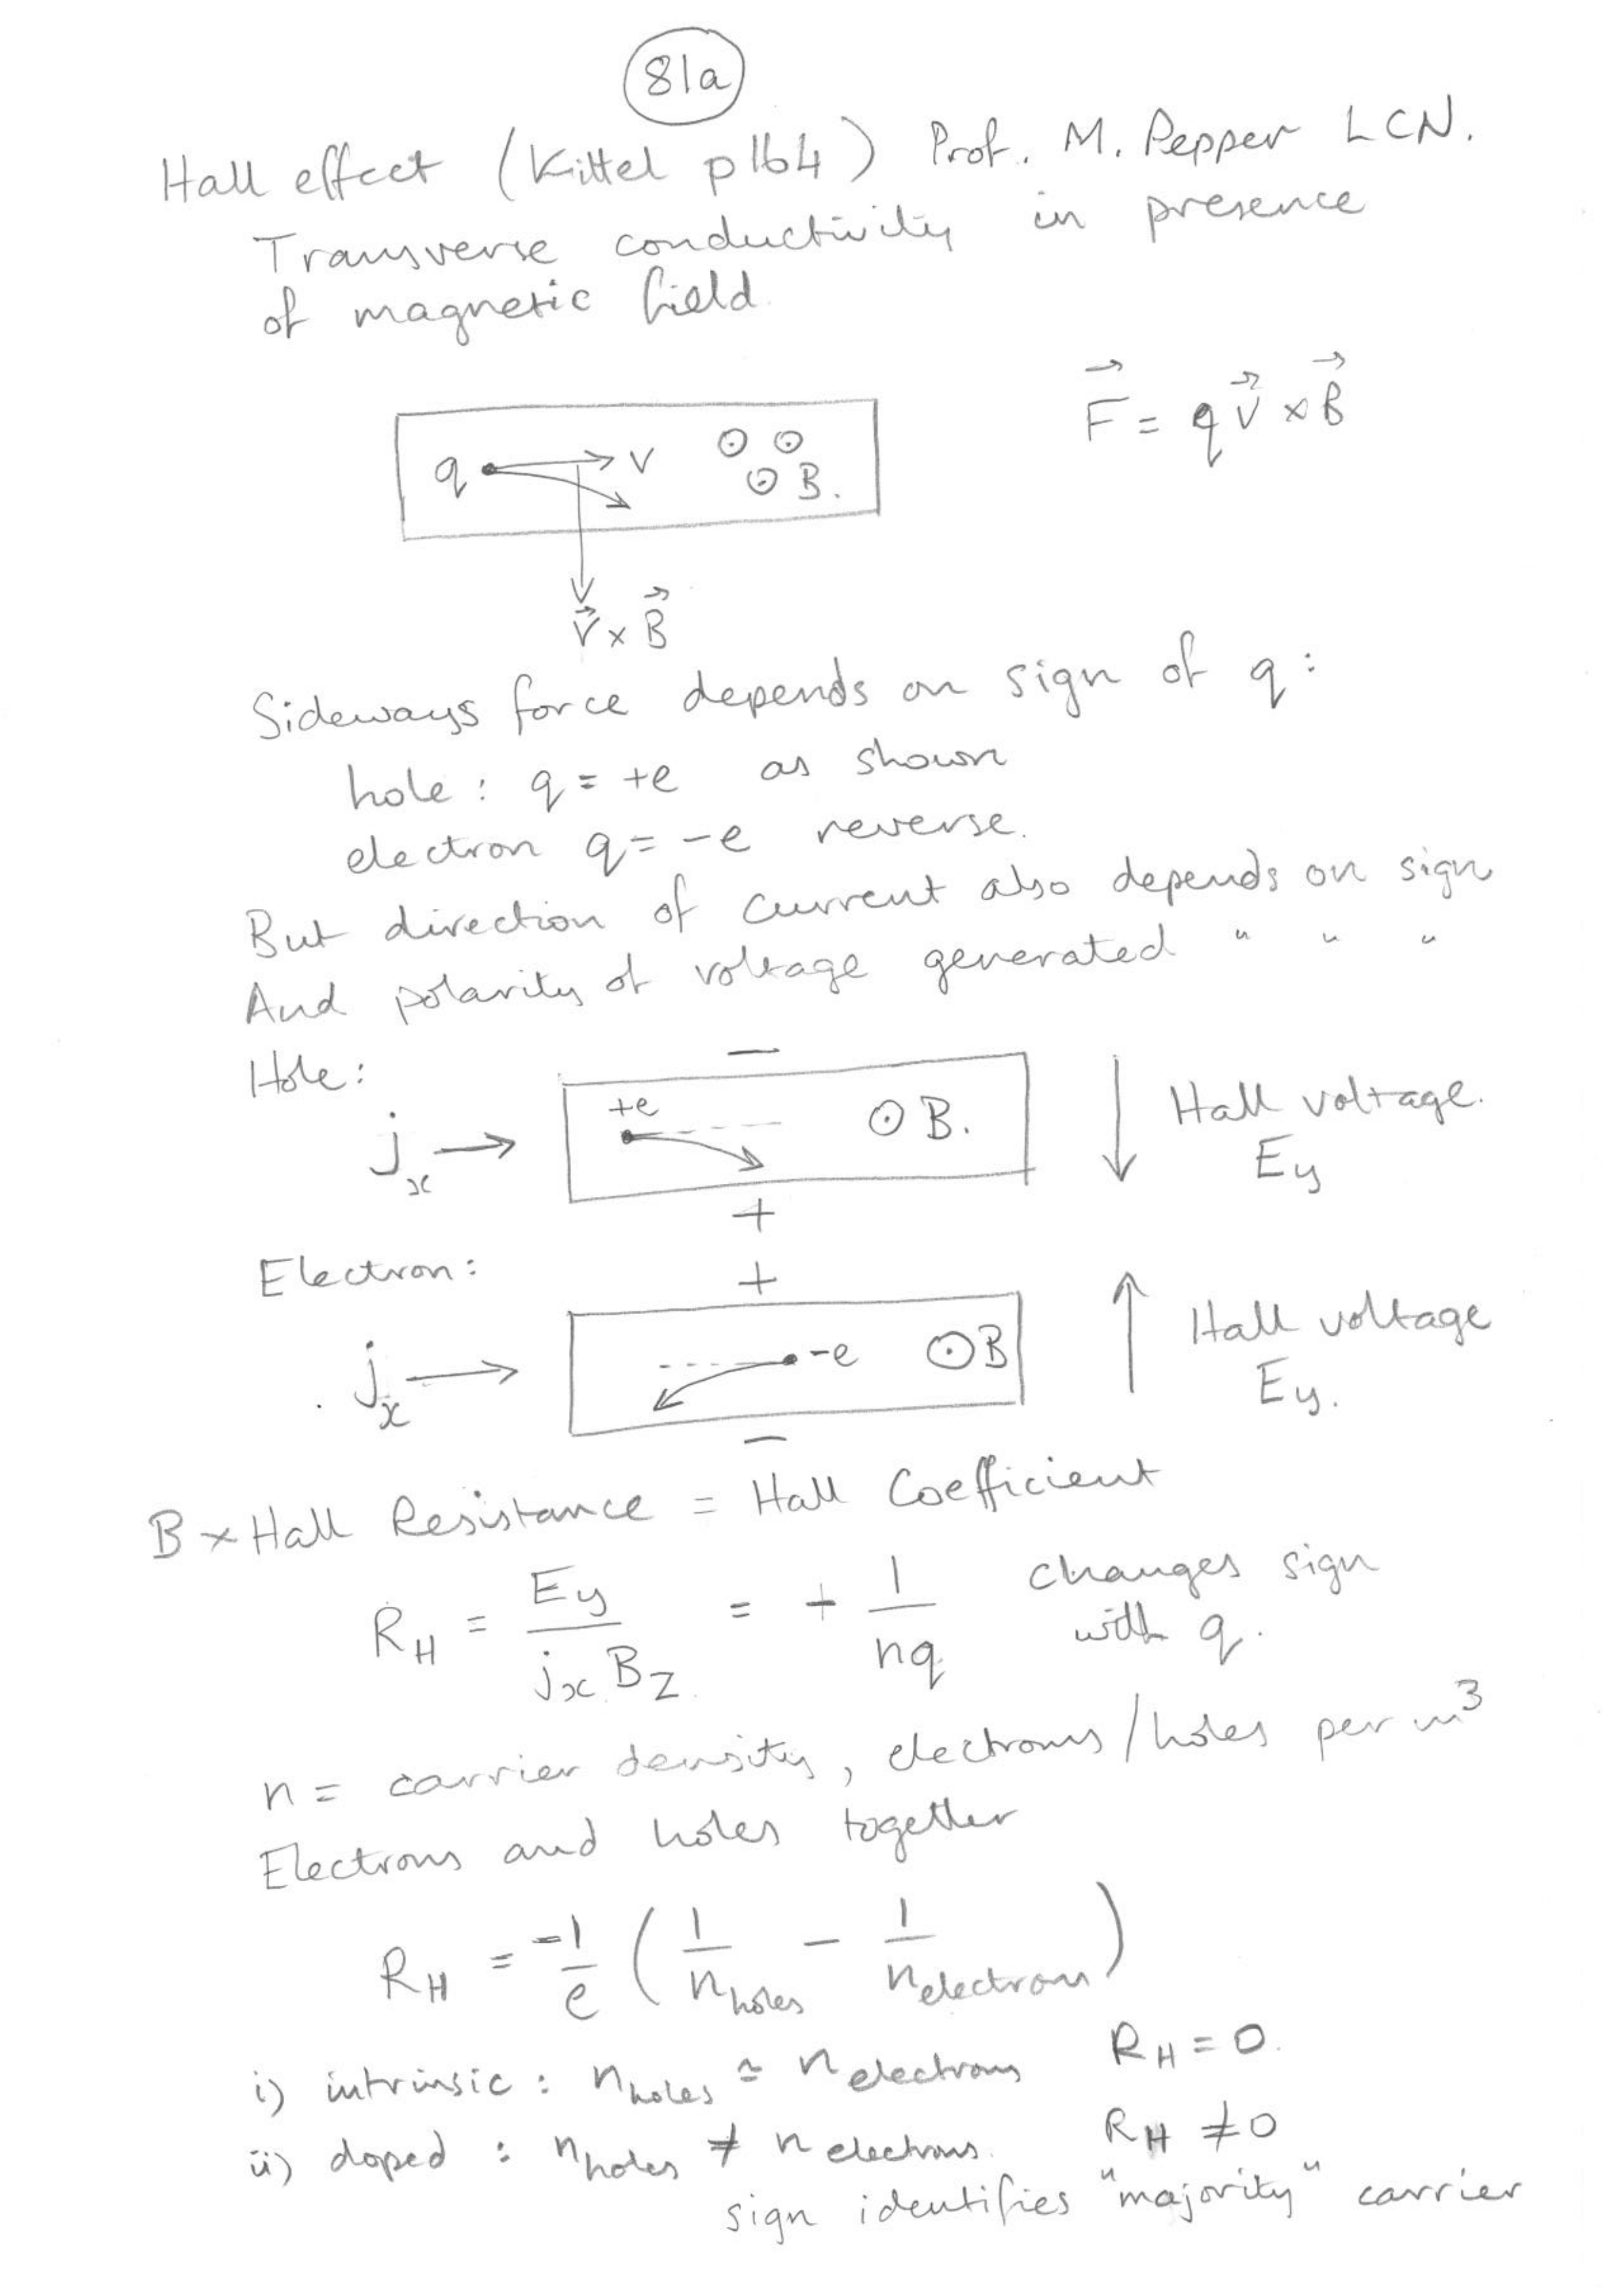 81a
Hall effect (Kittel p164) Prof. M. Pepper LCN.
Transverse conductivity in presence
of magnetic field.
F⃗ = q v⃗ × B⃗
q v ⊙ ⊙
⊙ B.
v⃗ × B⃗
Sideways force depends on sign of q:
hole: q = +e as shown
electron q = -e reverse.
But direction of current also depends on sign
And polarity of voltage generated " " "
Hole: −
jx → +e ⊙ B. ↓ Hall voltage.
Ey
+
Electron: +
jx → -e ⊙B ↑ Hall voltage
Ey.
−
B × Hall Resistance = Hall Coefficient
RH = Ey / jx Bz = + 1/nq changes sign
with q.
n = carrier density, electrons/holes per m³
Electrons and holes together
RH = -1/e ( 1/nholes − 1/nelectrons )
i) intrinsic : nholes ≃ nelectrons RH = 0.
ii) doped : nholes ≠ nelectrons. RH ≠ 0
sign identifies "majority" carrier